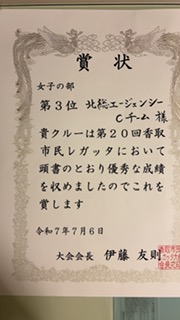 賞状
女子の部
第3位 北総エージェンシー
Cチーム 様
貴クルーは第20回香取
市民レガッタにおいて
頭書のとおり優秀な成績
を収めましたのでこれを
賞します
令和7年7月6日
大会会長 伊藤 友則